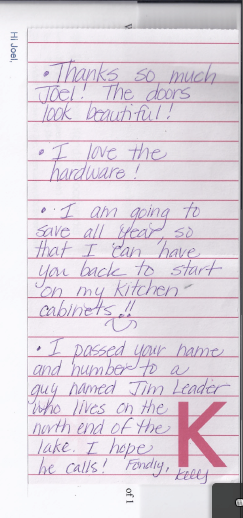 Hi Joel,
• Thanks so much
Joel! The doors
look beautiful!
• I love the
hardware!
• I am going to
save all year, so
that I can have
you back to start
on my kitchen
cabinets!!
• I passed your name
and number to a
guy named Jim Leader
who lives on the
north end of the
lake. I hope
he calls! Fondly,
Kelly
K
of 1